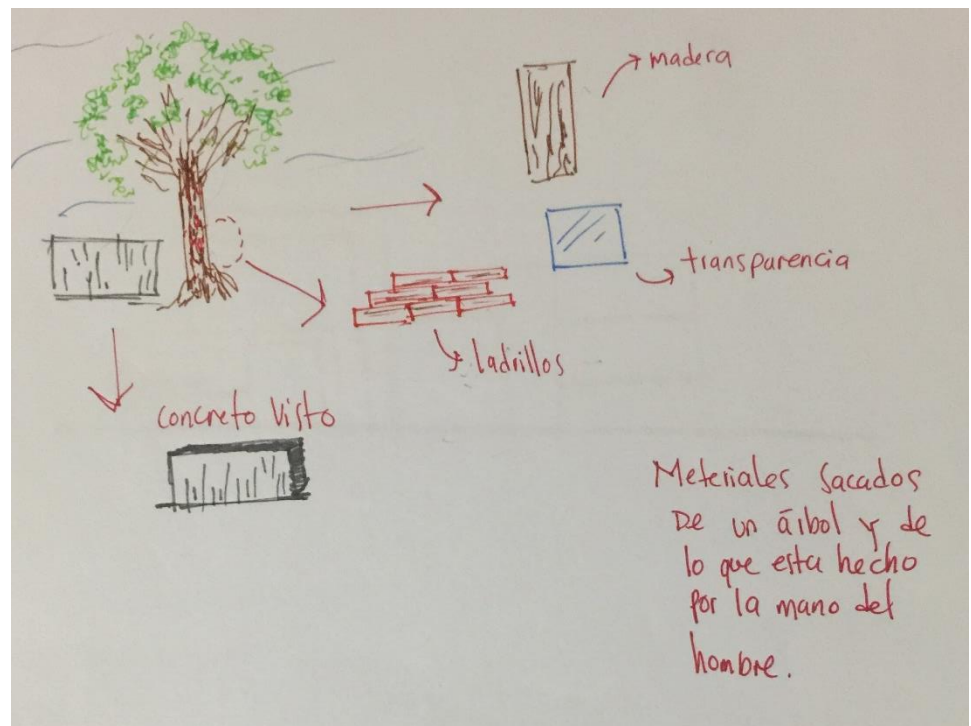 madera
transparencia
ladrillos
concreto visto
Meteriales sacados
De un árbol y de
lo que esta hecho
por la mano del
hombre.